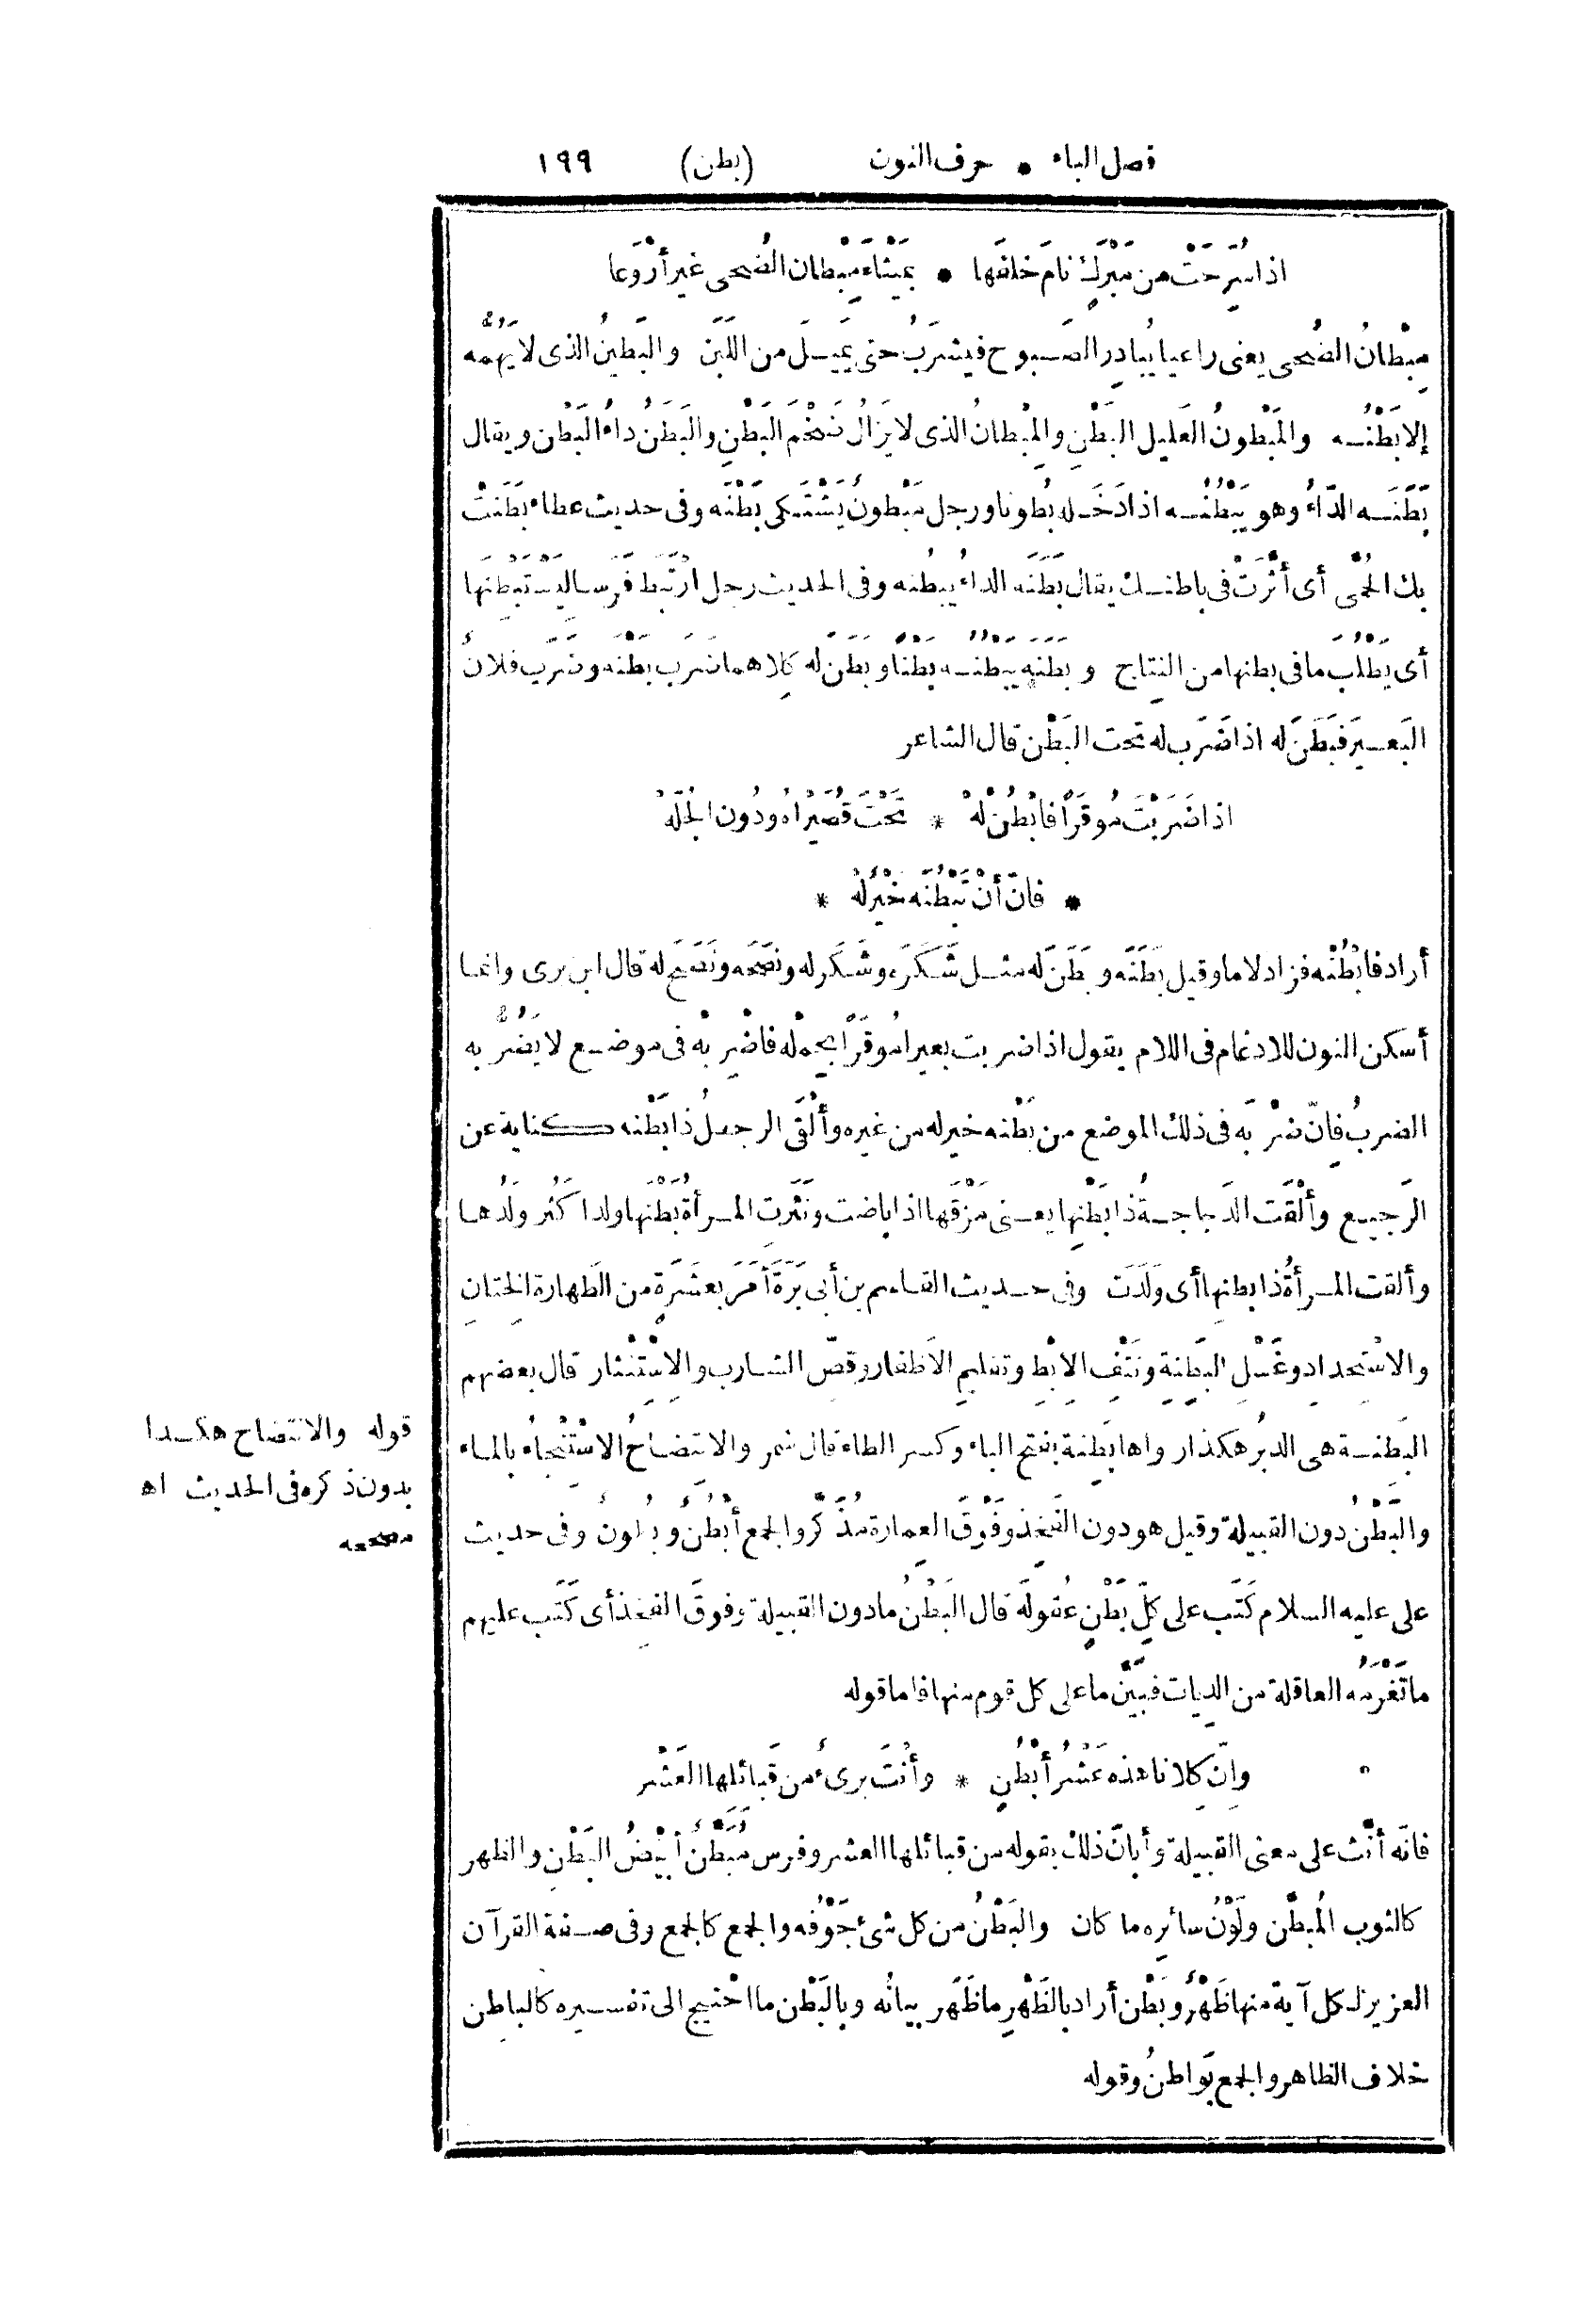 فصل الباء * حرف النون (بطن) ١٩٩
اذا سُرِّحَتْ من مَبْرَكٍ نامَ خلفَها * بمَيْثاءَ مِبْطان الضُحى غير أَرْوَعا
مِبْطانُ الضُحى يعنى راعيا يُبادِر الصَبوح فيشرَبُ حتى يَميلَ من اللَبَن والبَطينُ الذى لا يَهُمُّه
إلا بَطْنُه والمَبْطونُ العَليل البَطْنِ والمِبْطانُ الذى لا يزَالُ ضَخْمَ البَطْنِ والبَطَنُ داءُ البَطْن ويقال
بَطَنَه الدّاءُ وهو يَبْطُنُه اذا دَخَله بُطونا ورجل مَبْطونٌ يَشْتَكى بَطْنَه وفى حديث عطاء بَطَنَتْ
بك الحُمَّى أى أَثَّرَتْ فى باطنك يقال بَطَنَه الداءُ يبطُنه وفى الحديث رجل ارْتَبَط فَرَسا ليَسْتَبْطِنَها
أى يَطْلُبَ ما فى بطنها من النِتاج وبَطَنَه يَبْطُنُه بَطْنًا وبَطَنَ له كِلاهما ضَرَبَ بَطْنَه وضَرَب فلانٌ
البَعيرَ فبَطَنَ له اذا ضَرَب له تحت البَطْن قال الشاعر
اذا ضَرَبْتَ مُوقَرًا فابْطُنْ لَهْ * تَحْتَ قُصَيْراهُ ودُون الجُلَّهْ
* فانّ أَنْ تَبْطُنَه خَيْرٌ لَهْ *
أراد فابْطُنْه فزاد لاما وقيل بَطَنَه وبَطَنَ له مثل شَكَرَه وشَكَر له ونصَحَه ونَصَحَ له قال ابن برى وانما
أسكن النون للادغام فى اللام يقول اذا ضربت بعيرا مُوقَرًا بحِمْله فاضْرِبْه فى موضع لا يَضُرُّ به
الضربُ فإنّ ضرْبَه فى ذلك الموضع من بَطْنه خير له من غيره وأَلْقَى الرجلُ ذا بَطْنه كناية عن
الرَجيع وأَلْقَت الدَجاجةُ ذا بَطْنِها يعنى مَزْقَها اذا باضت ونَثَرَتِ المرأةُ بَطْنَها ولدا كَثُر ولَدُها
وألقت المرأةُ ذا بطنِها أى وَلَدَت وفى حديث القاسم بن أبى بَرَّةَ أَمَرَ بعشَرَةٍ من الطَهارة الخِتانِ
والاسْتِحداد وغَسْلِ البَطِنةِ ونَتْفِ الابْطِ وتقليم الأَظفار وقصّ الشارب والاسْتِنْثار قال بعضهم
البَطِنة هى الدبُر هكذا رواها بَطِنة بفتح الباء وكسر الطاء قال شمر والانتِضاحُ الاسْتِنْجاءُ بالماء
والبَطْنُ دون القبيلة وقيل هو دون الفَخِذ وفَوْقَ العِمارة مُذَكَّر والجمع أَبْطُنٌ وبُطونٌ وفى حديث
على عليه السلام كَتَب على كلّ بَطْنٍ عُقولَه قال البَطْنُ ما دون القبيلة وفوقَ الفخِذ أى كَتَب عليهم
ما تَغْرَمُه العاقلة من الدِيات فبَيَّنَ ما على كل قوم منها فاما قوله
وانّ كِلابا هذه عَشْرُ أَبْطُنٍ * وأَنْتَ برىءٌ من قَبائِلها العَشْر
فانّه أَنَّث على معنى القبيلة وأبانَ ذلك بقوله من قبائلها العشر وفرس مُبَطَّنٌ أَبْيَضُ البَطْنِ والظهر
كالثوب المُبطَّن ولَوْنُ سائرِه ما كان والبَطْنُ من كل شىءٍ جَوْفُه والجمع كالجمع وفى صفة القرآن
العزيز لكل آية منها ظَهْرٌ وبَطْن أراد بالظَهْرِ ما ظَهَر بيانُه وبالبَطْن ما احْتيج الى تفسيره كالباطِن
خلاف الظاهر والجمع بَواطنُ وقوله
قوله والانتضاح هكذا
بدون ذكره فى الحديث اه
مصححه